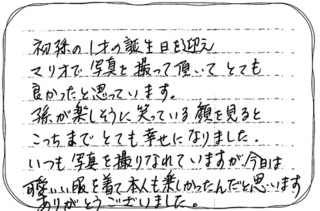 初孫の1才の誕生日を迎え
マリオで写真を撮って頂いてとても
良かったと思っています。
孫が楽しそうに笑っている顔を見ると
こっちまでとても幸せになりました。
いつも写真を撮りなれていますが今日は
可愛いい服を着て本人も楽しかったんだと思います
ありがとうございました。